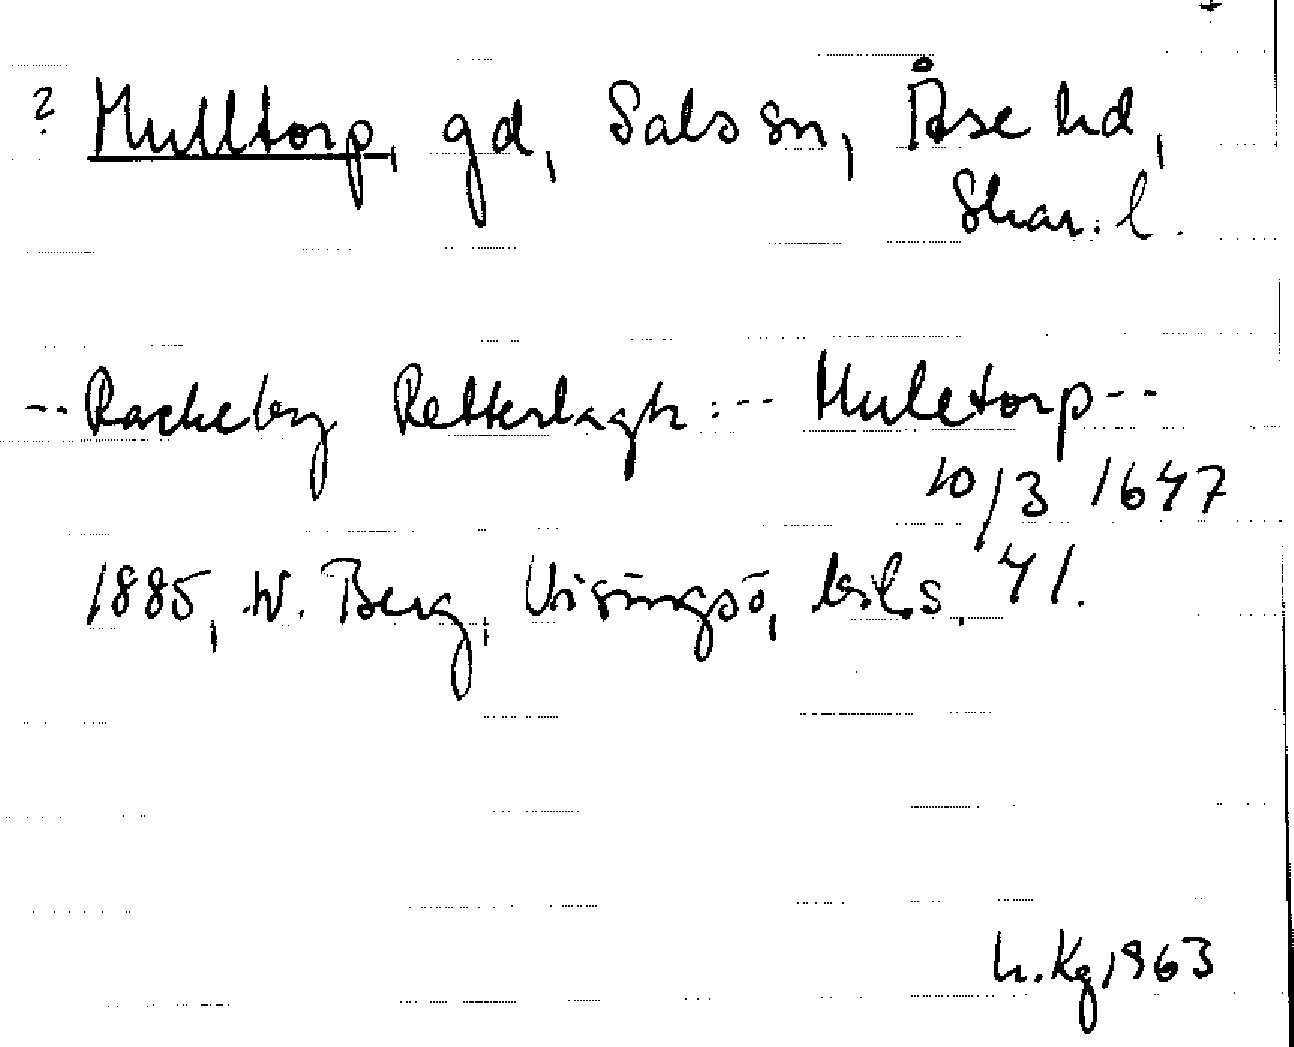 ? Hulltorp, gd, Sals sn, Åse hd,
Skar. l.
-- Rackeby Retterlagh: --- Huletorp --
10/3 1647
1885, W. Berg, Visingsö, bil. s. 41.
h. Kg 1963